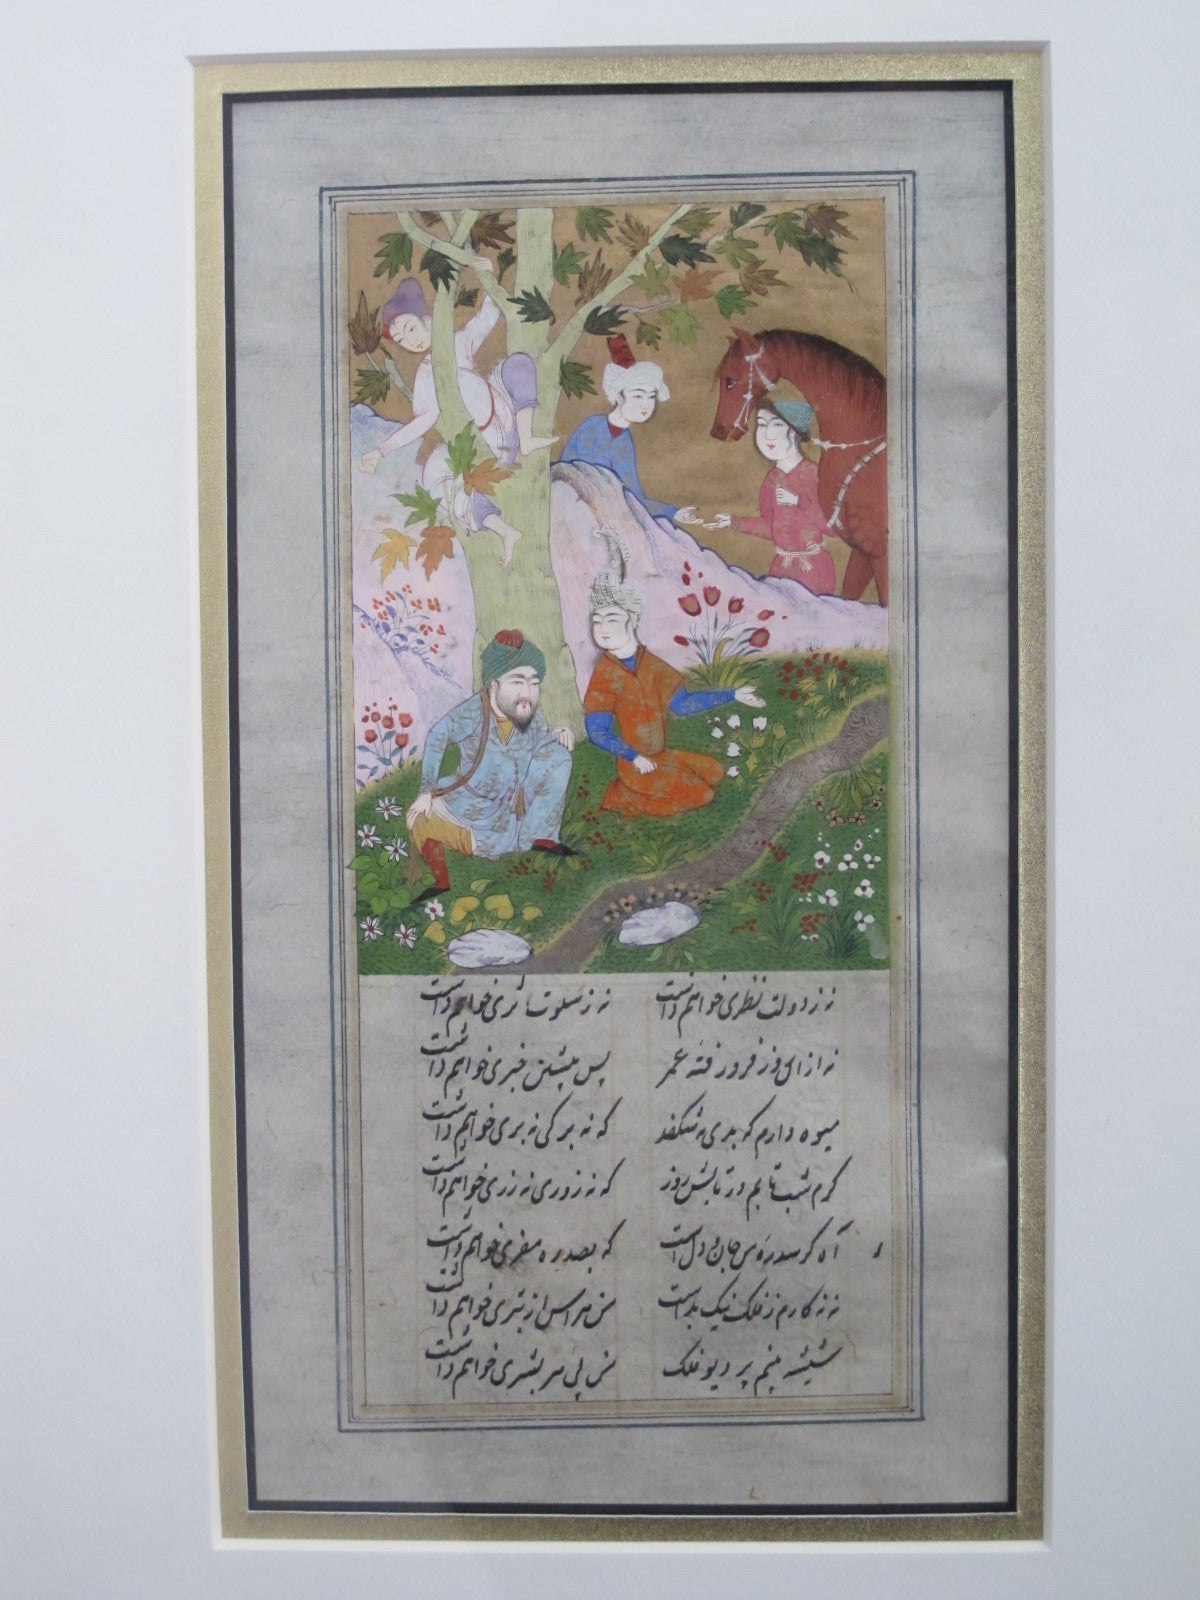 نه ز دولت نظری خواهم داشت نه ز سلوت اثری خواهم داشت
نه از ای روز فرو رفته عمر پس پیشین خبری خواهم داشت
میوه دارم که بدی مه شکفد که نه برگی نه بری خواهم داشت
کرم شب تابم در تابش روز که نه زوری نه زری خواهم داشت
آه کز سدره جان و دل است که بصدره سفری خواهم داشت
نه نه کارم ز فلک نیک بد است من هراس از بتری خواهم داشت
شیشه بینم پر دیو فلک من پی سر بشری خواهم داشت